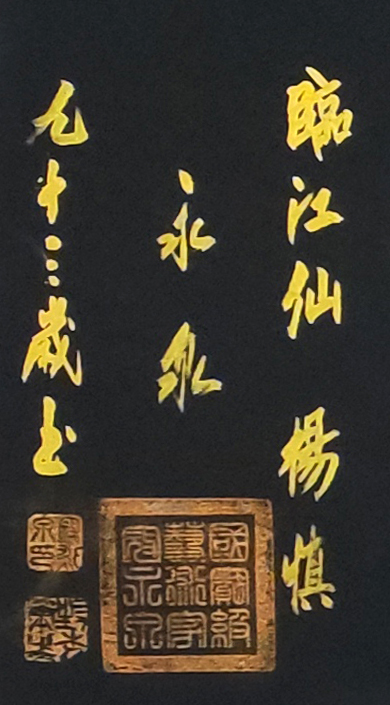 臨江仙 楊慎
永泉
九十三歲书
國寶級
藝術家
永泉